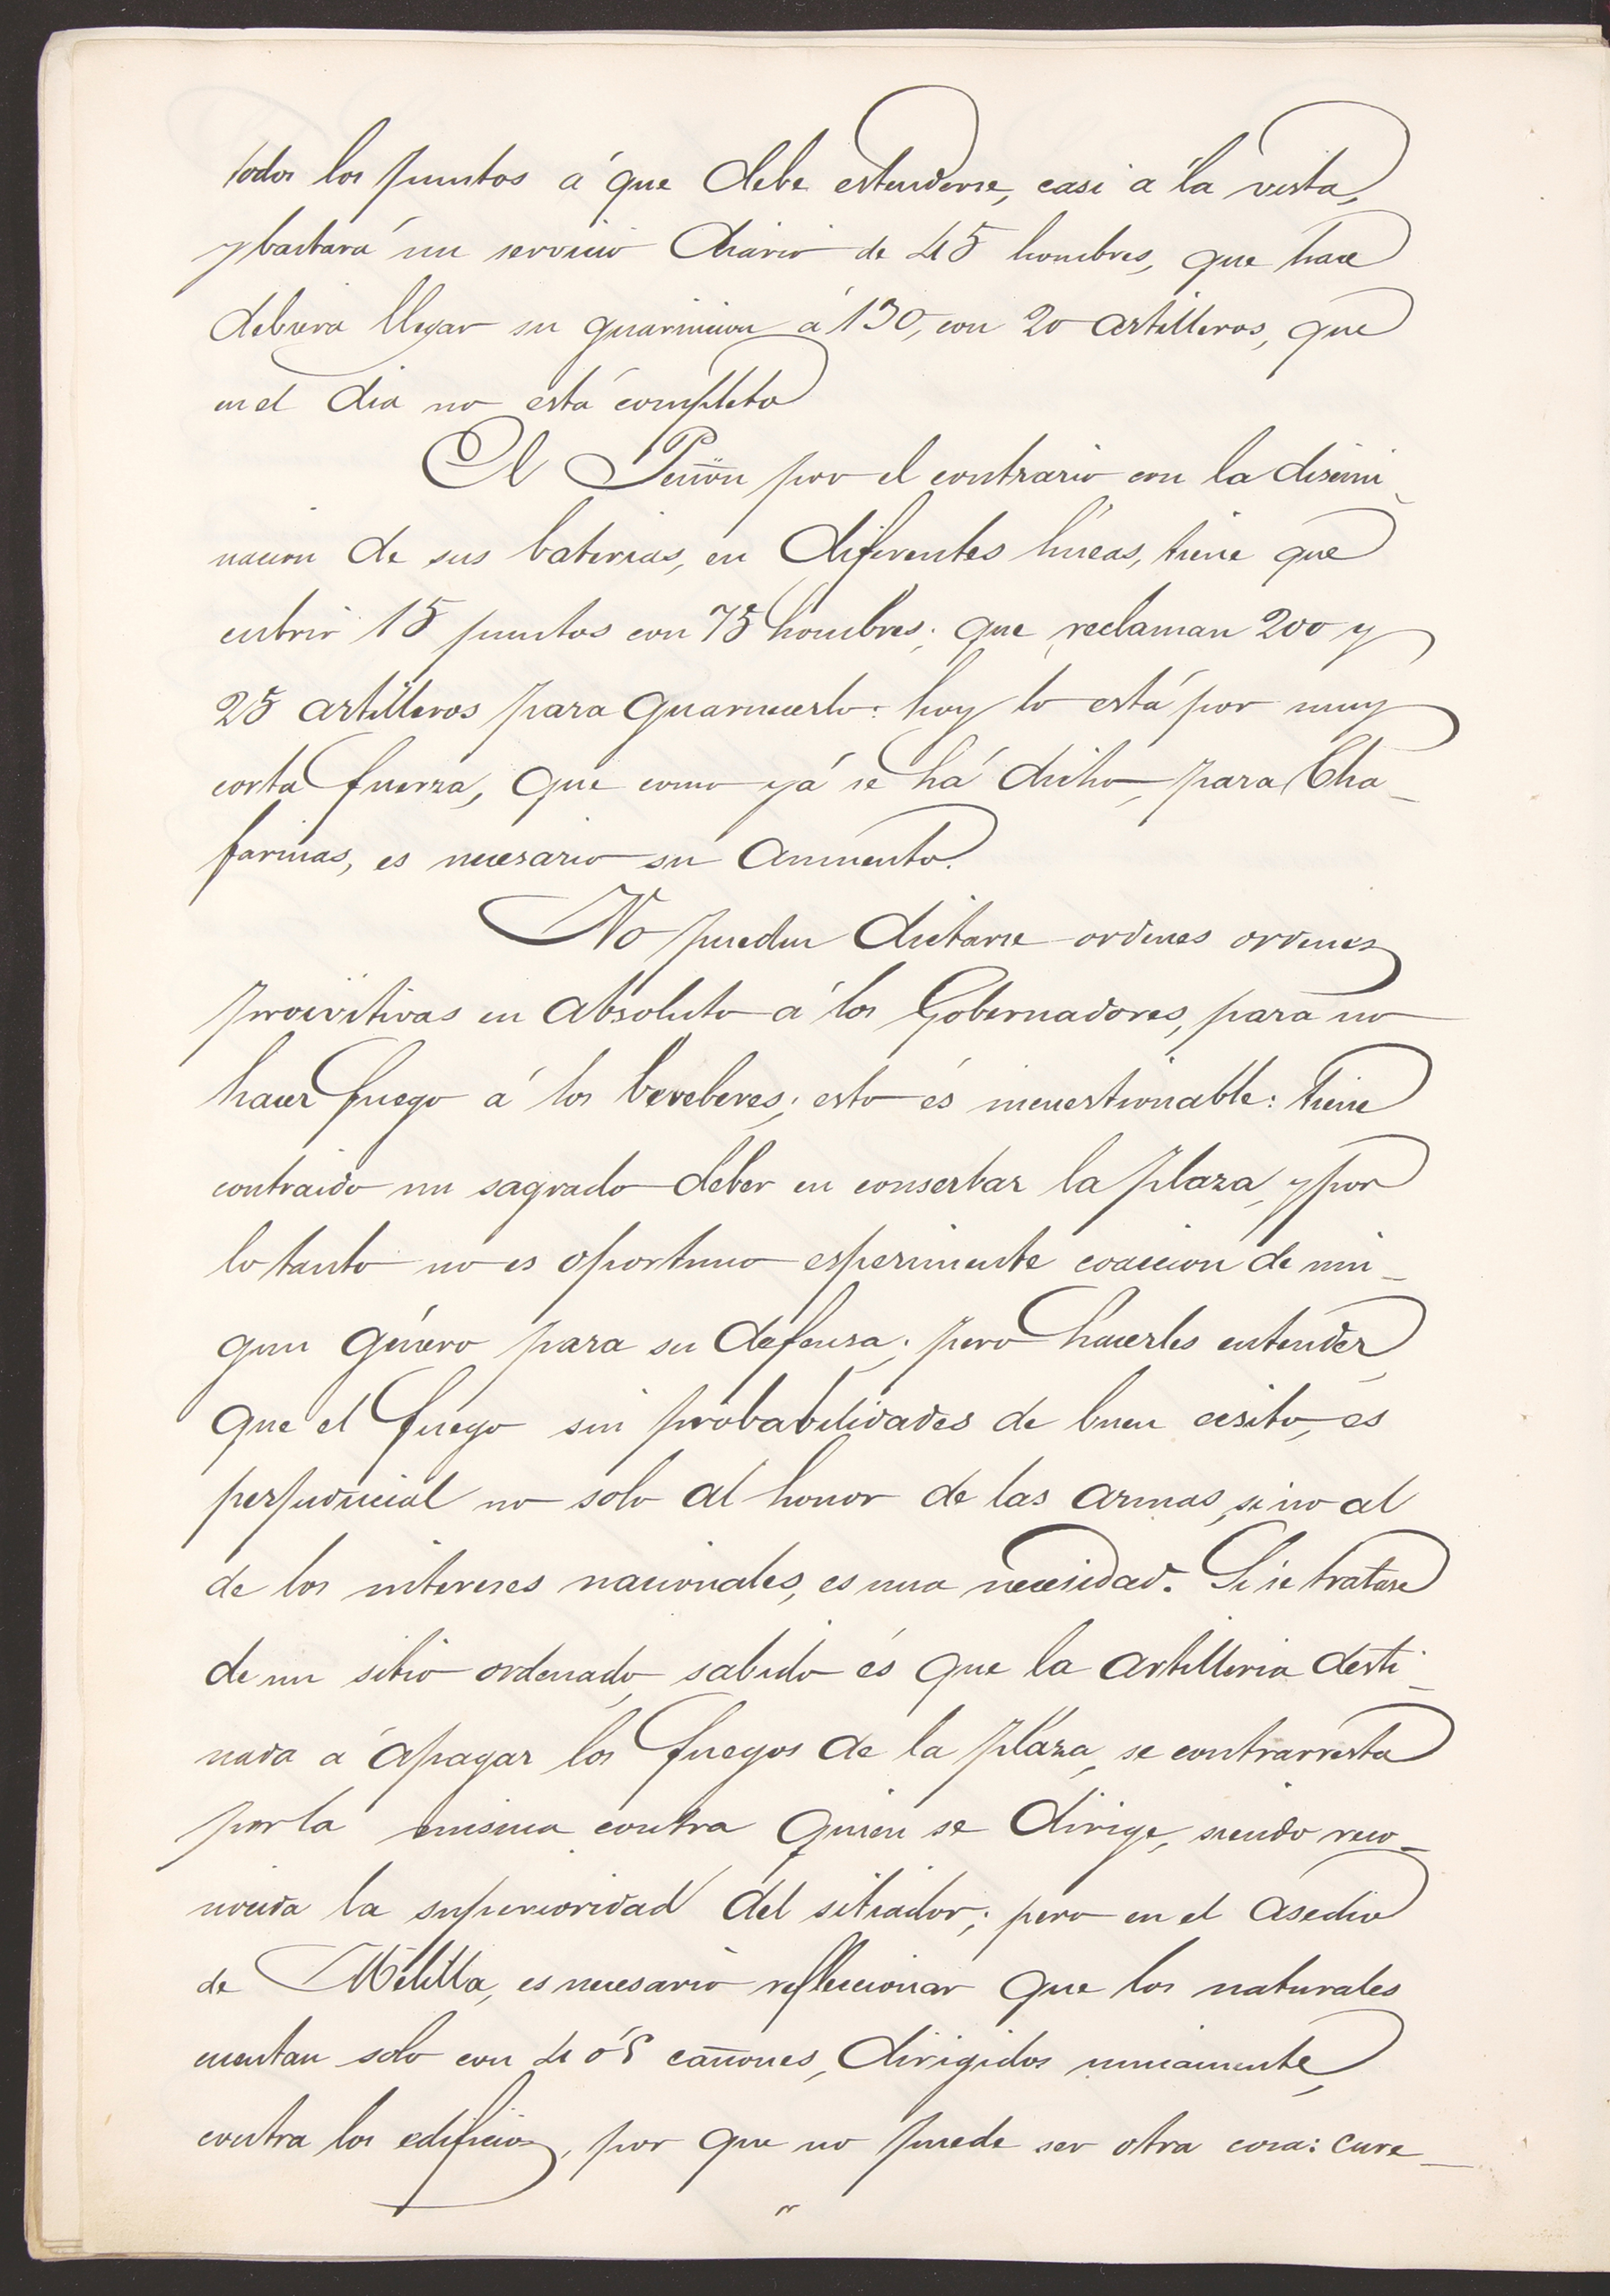 todos los puntos á que debe estenderse, casi á la vista,
y bastará un servicio diario de 45 hombres, que hace
debiera llegar su guarnicion á 130, con 20 artilleros, que
en el dia no está completa
El Peñon por el contrario con la disemi-
nacion de sus baterias, en diferentes líneas, tiene que
cubrir 15 puntos con 75 hombres; que reclaman 200 y
25 artilleros para guarnecerlo: hoy lo está por muy
corta fuerza, que como yá se há dicho, para Cha-
farinas, es necesario su aumento.
No pueden dictarse ordenes ordenes
proivitivas en absoluto á los Gobernadores, para no
hacer fuego á los bereberes; esto és incuestionable: tiene
contraido un sagrado deber en conserbar la plaza, y por
lo tanto no es oportuno esperimente coaccion de nin-
gun género para su defensa; pero hacerles entender,
que el fuego sin probabilidades de buen ecsito, es
perjudicial no solo al honor de las armas, sino al
de los intereses nacionales, es una necesidad. Si se tratase
de un sitio ordenado, sabido és que la artilleria desti-
nada á apagar los fuegos de la plaza, se contrarresta
por la misma contra quien se dirige, siendo reco-
nocida la superioridad del sitiador; pero en el asedio
de Melilla, es necesario refleccionar que los naturales
cuentan solo con 4 ó 5 cañones, dirigidos unicamente,
contra los edificios, por que no puede ser otra cosa: cure-